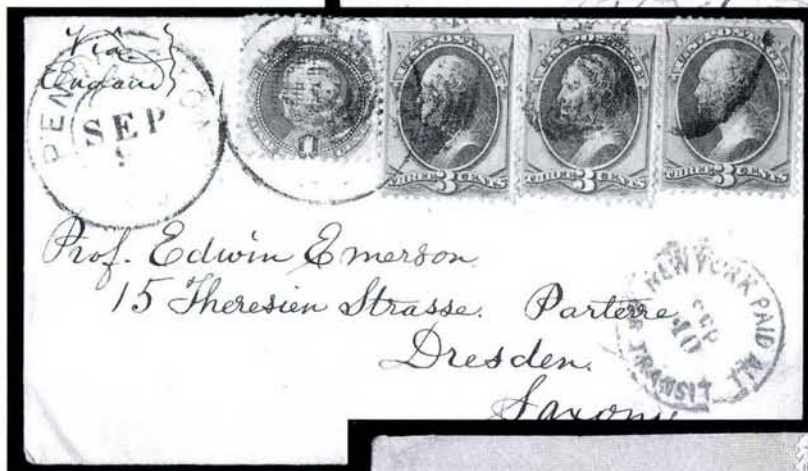 Via
England
SEP
U.S. POSTAGE
U.S. POSTAGE
U.S. POSTAGE
1
THREE 3 CENTS
THREE 3 CENTS
THREE 3 CENTS
Prof. Edwin Emerson
15 Theresien Strasse. Parterre
Dresden.
Saxony
NEW YORK PAID ALL
SEP
10
BR TRANSIT